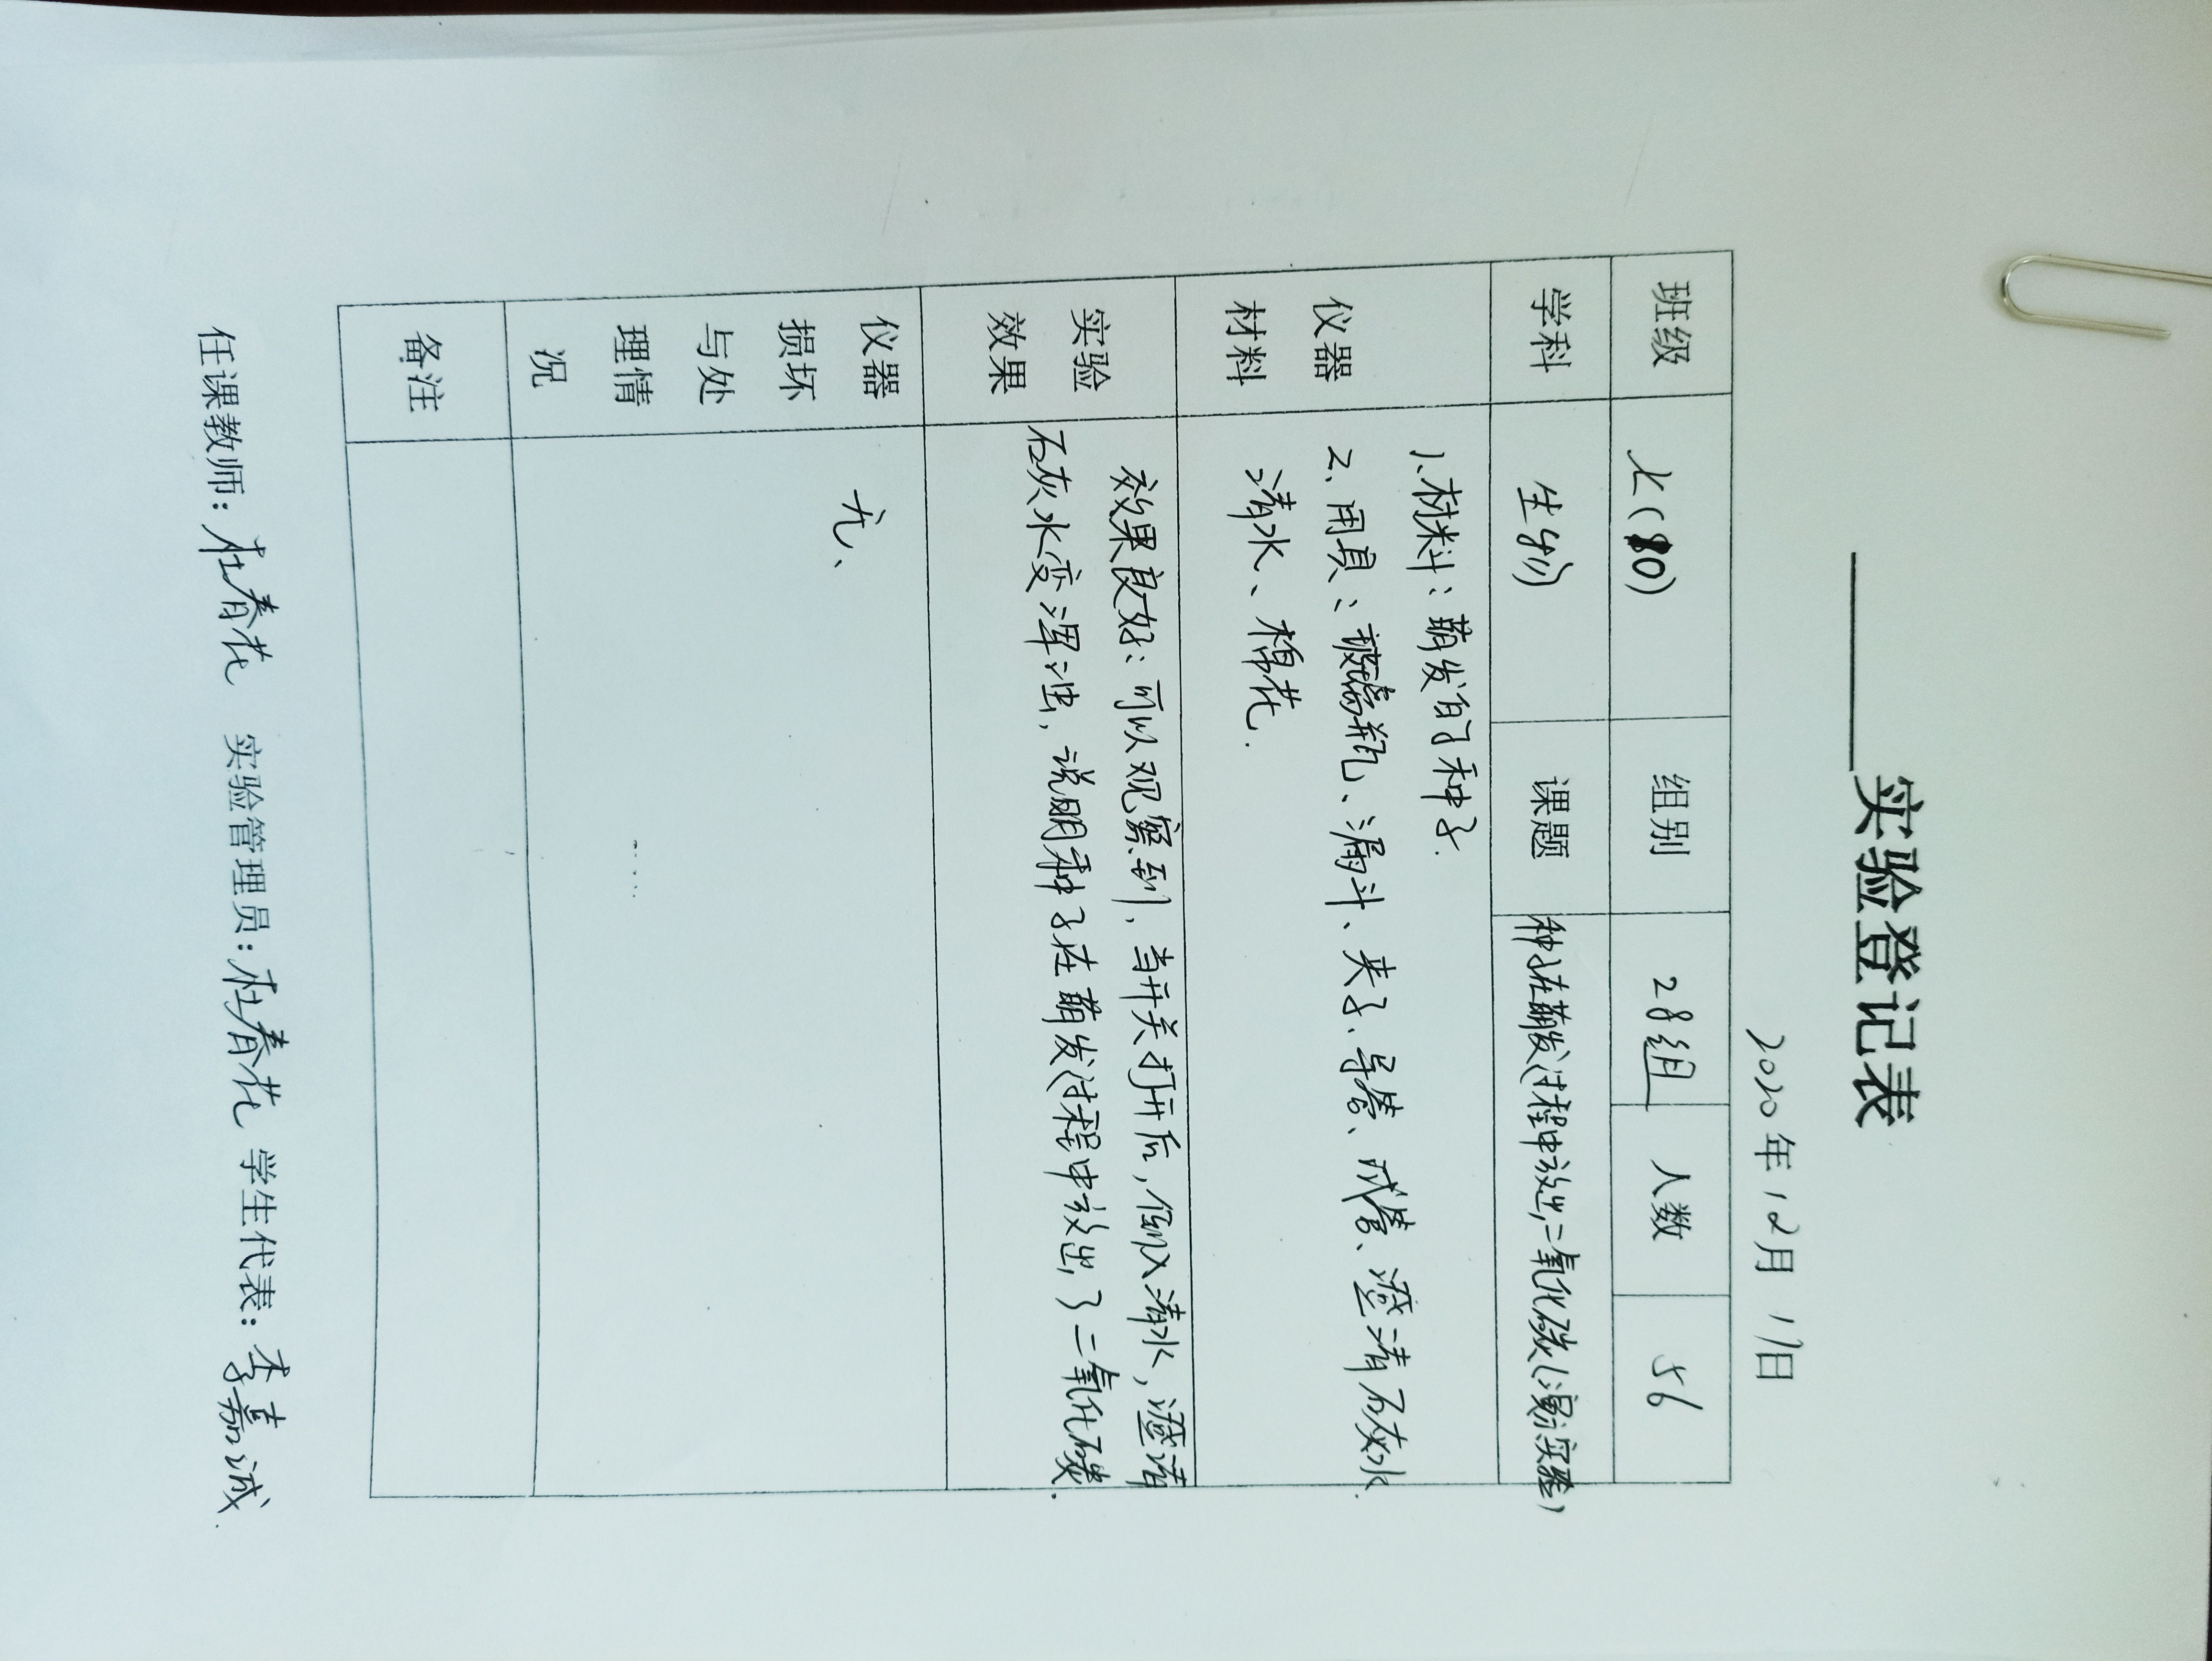 实验登记表
2020年12月17日
班级 七(10) 组别 28组 人数 56
学科 生物 课题 种子在萌发过程中放出二氧化碳(演示实验)
仪器
材料
1、材料：萌发的种子.
2、用具：玻璃瓶、漏斗、夹子、导管、试管、澄清石灰水
清水、棉花.
实验
效果
效果良好：可以观察到，当开关打开后，倾入清水，澄清
石灰水变浑浊，说明种子在萌发过程中放出了二氧化碳.
仪器
损坏
与处
理情
况
无、
备注
任课教师：杜春花 实验管理员：杜春花 学生代表：李嘉诚.